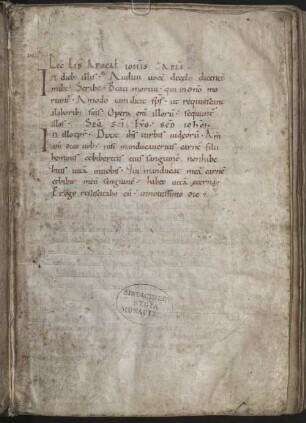 Lec lib Apocal iohis Apli
In dieb illis. Audivi vocē de celo dicentē
mihi. Scribe. Beati mortui qui in dno mo
riunt. Amodo iam dicit sps. ut requiescant
a laborib suis. Opera eni illorū sequunt
illos. Sēq sci evg scd iohem
In illo tpr. Dixit ihs turbis iudeorū. Am
am dico vob. nisi manducaveritis carnē filii
hominis et biberitis eius sanguinē non habe
bitis vitā in vobis. Qui manducat meā carnē
et bibit meū sanguinē. habet vitā aeternā.
Et ego resuscitabo eū. in novissimo die.
BIBLIOTHECA
REGIA
MONACENSIS